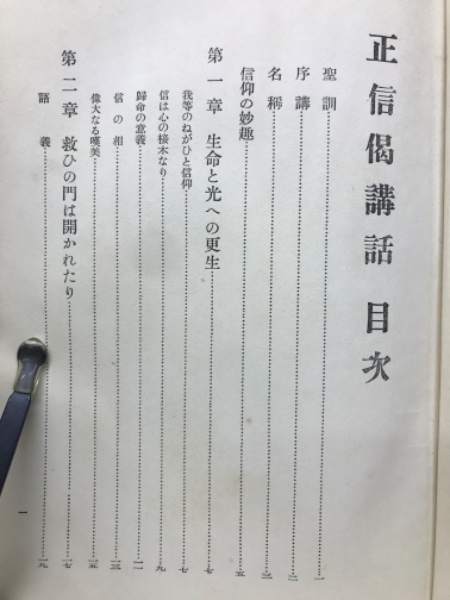 正信偈講話 目次
聖訓…一
序講…二
名稱…三
信仰の妙趣…五
第一章 生命と光への更生…七
我等のねがひと信仰…七
信は心の接木なり…九
歸命の意義…一一
信の相…一三
偉大なる嘆美…一五
第二章 救ひの門は開かれたり…一七
語義…一九
一